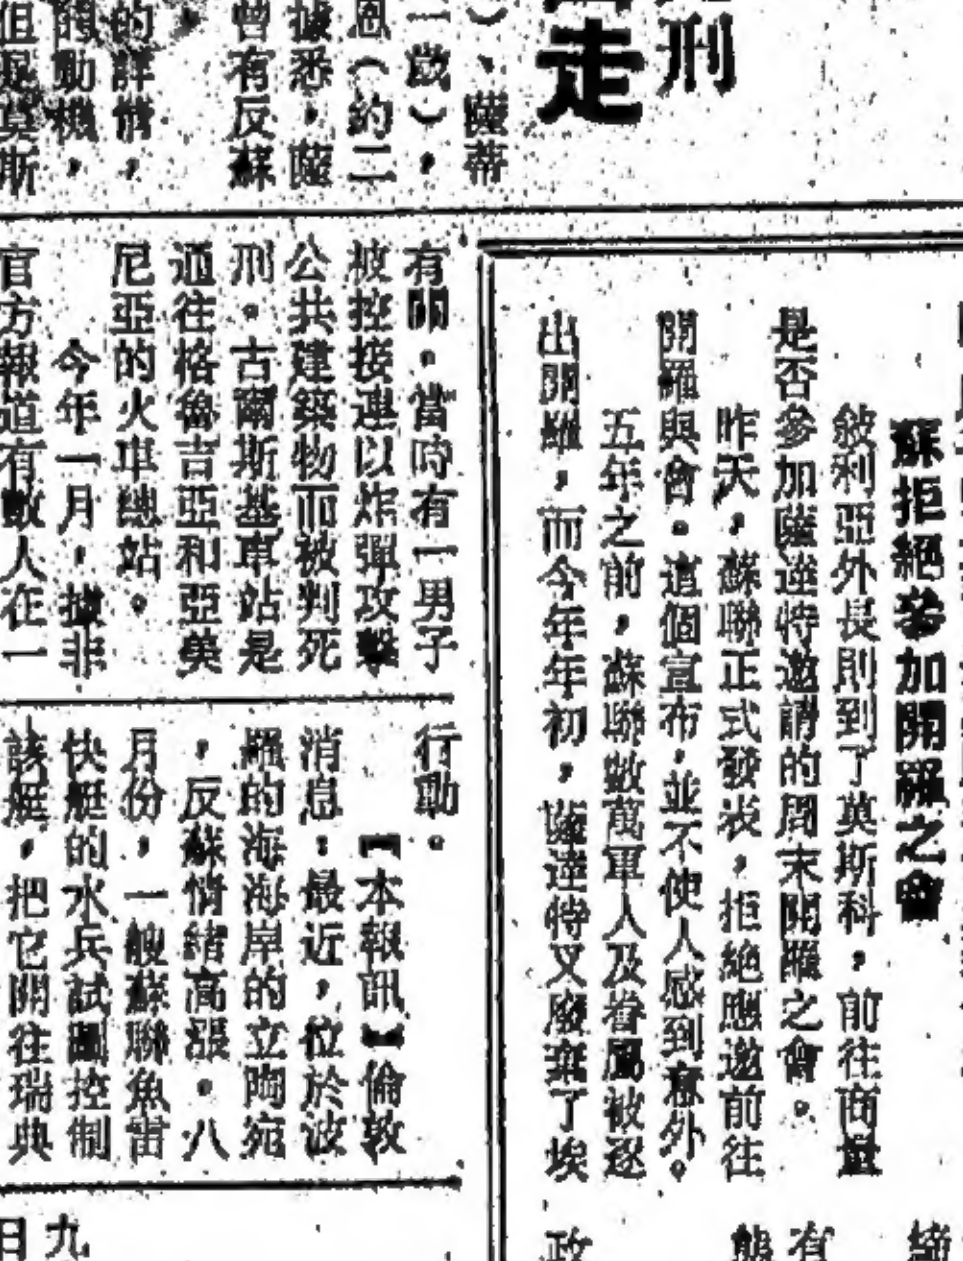 刑
走
）、薩蒂
二歲），
恩（約二
據悉，薩
曾有反蘇
的詳情，
的動機，
但尼莫斯
蘇拒絕參加開羅之會
敘利亞外長則到了莫斯科，前往商量
是否參加薩達特邀請的周末開羅之會。
昨天，蘇聯正式發表，拒絕應邀前往
開羅與會。這個宣布，並不使人感到意外。
五年之前，蘇聯數萬軍人及眷屬被逐
出開羅，而今年年初，薩達特又廢棄了埃
締
有
態
政
有關。當時有一男子
被控接連以炸彈攻擊
公共建築物而被判死
刑。古爾斯基車站是
通往格魯吉亞和亞美
尼亞的火車總站。
今年一月，據非
官方報道有數人在一
行動。
【本報訊】倫敦
消息：最近，位於波
羅的海海岸的立陶宛
，反蘇情緒高漲。八
月份，一艘蘇聯魚雷
快艇的水兵試圖控制
該艇，把它開往瑞典
九
日